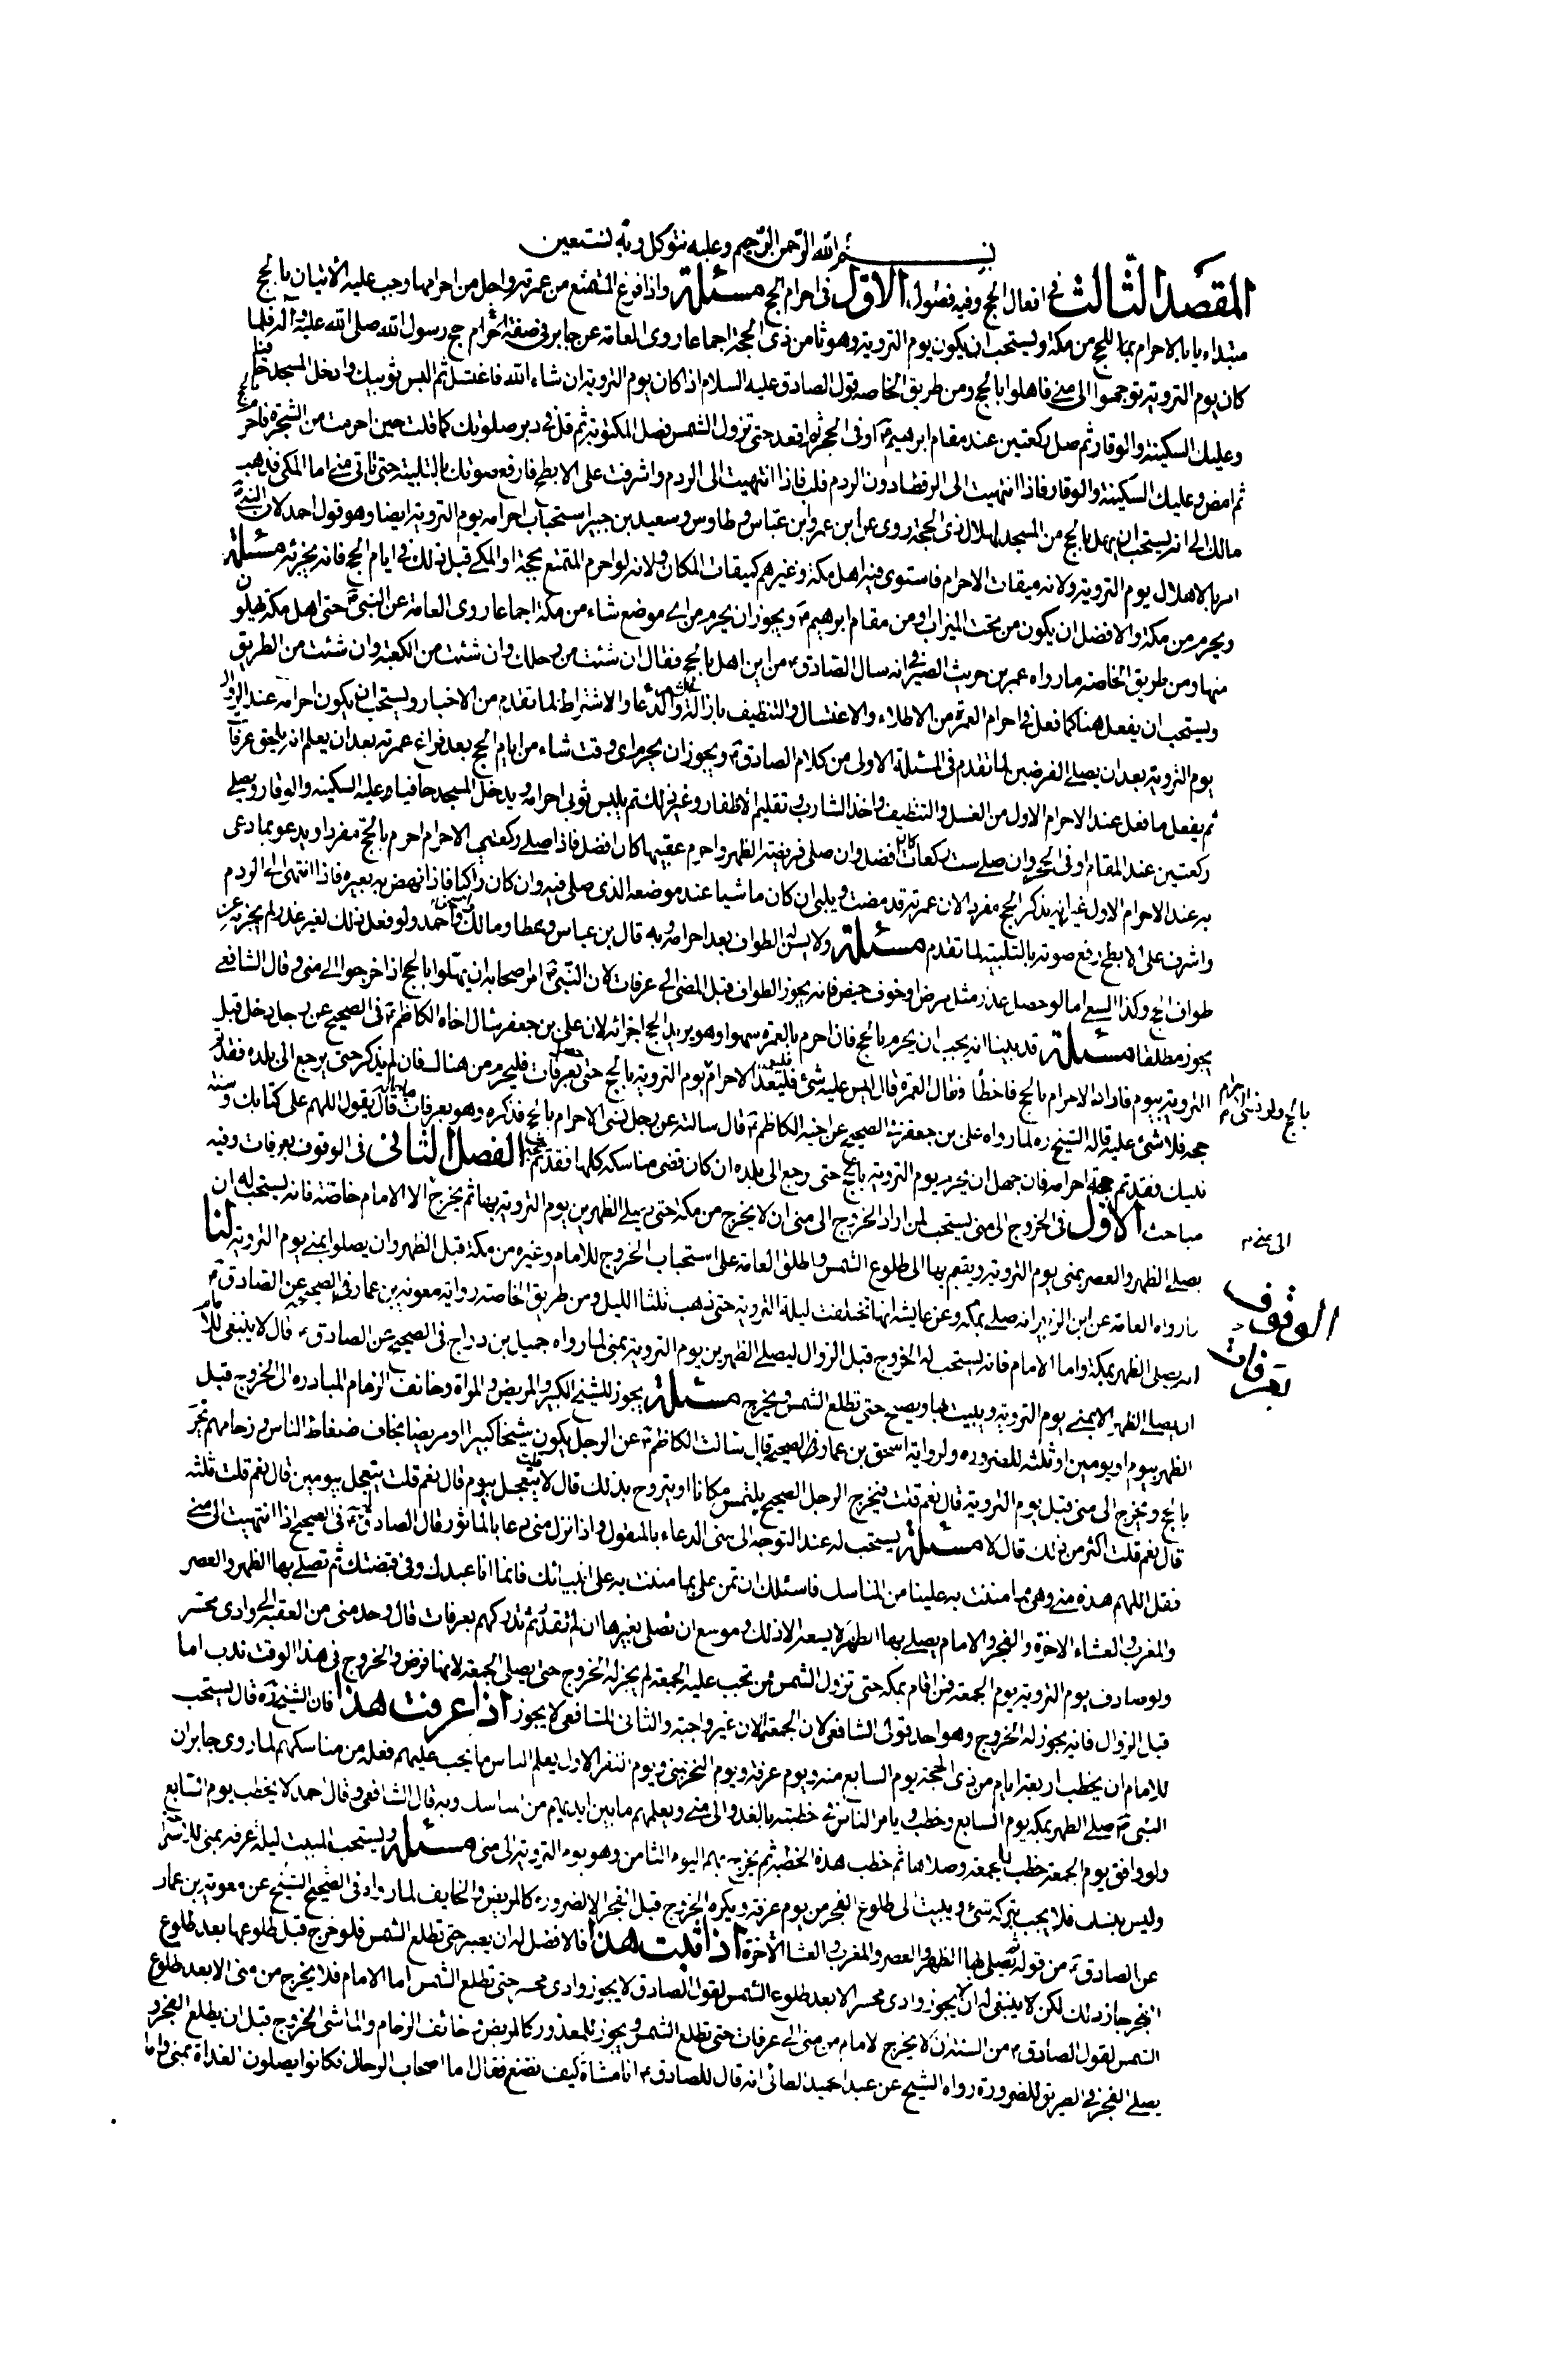 بسم الله الرحمن الرحيم وعليه نتوكل وبه نستعين
المقصد الثالث في افعال الحج وفيه فصول الاول في احرام الحج مسئلة واذا فرغ المتمتع من عمرته واحل من احرامها وجب عليه الاتيان بالحج
مبتداء بالاحرام للحج من مكة ويستحب ان يكون يوم التروية وهو ثامن ذي الحجة اجماعا روى العامة عن جابر في صفة حج رسول الله صلى الله عليه وآله فلما
كان يوم التروية توجهوا الى منى فاهلوا بالحج ومن طريق الخاصه قول الصادق عليه السلام اذا كان يوم التروية ان شاء الله فاغتسل ثم البس ثوبيك وادخل المسجد حافيا
وعليك السكينة والوقار ثم صل ركعتين عند مقام ابرهيم ع او في الحجر ثم اقعد حتى تزول الشمس فصل المكتوبة ثم قل في دبر صلوتك كما قلت حين احرمت من الشجرة فاحرم بالحج
ثم امض وعليك السكينة والوقار فاذا انتهيت الى الرقطا دون الردم فلب فاذا انتهيت الى الردم واشرفت على الابطح فارفع صوتك بالتلبية حتى تاتي منى اما المكي فذهب
مالك الى انه يستحب ان يهل بالحج من المسجد لهلال ذي الحجة وروى عن ابن عمر وابن عباس وطاوس وسعيد بن جبير استحباب احرامه يوم التروية ايضا وهو قول احمد لان النبي ص
امر بالاهلال يوم التروية ولانه ميقات الاحرام فاستوى فيه اهل مكة وغيرهم كميقات المكان ولانه لو احرم المتمتع بحجه او المكي قبل ذلك في ايام الحج فانه يجزئه مسئلة
ويحرم من مكة والافضل ان يكون من تحت الميزاب او من مقام ابرهيم ع ويجوز ان يحرم من اي موضع شاء من مكة اجماعا روى العامة عن النبي ص حتى اهل مكة يهلون
منها ومن طريق الخاصه ما رواه عمر بن حريث الصيرفي انه سال الصادق ع من اين اهل بالحج فقال ان شئت من رحلك وان شئت من الكعبة وان شئت من الطريق
ويستحب ان يفعل هنا كما فعل في احرام العمرة من الاطلاء والاغتسال والتنظيف بازالة الشعر والدعا والاشتراط لما تقدم من الاخبار ويستحب ان يكون احرامه عند الزوال
يوم التروية بعد ان يصلي الفرضين لما تقدم في المسئلة الاولى من كلام الصادق ع ويجوز ان يحرم اي وقت شاء من ايام الحج بعد فراغ عمرته بعد ان يعلم انه يلحق عرفات
ثم يفعل ما فعل عند الاحرام الاول من الغسل والتنظيف واخذ الشارب وتقليم الاظفار وغير ذلك ثم يلبس ثوبي احرامه ويدخل المسجد حافيا وعليه السكينة والوقار ويصلي
ركعتين عند المقام او في الحجر وان صلى ست ركعات كان افضل وان صلى فريضة الظهر واحرم عقيبها كان افضل فاذا صلى ركعتي الاحرام احرم بالحج مفردا ويدعو بما دعى
به عند الاحرام الاول غير انه يذكر الحج مفردا لان عمرته قد مضت ويلبي ان كان ماشيا عند موضعه الذي صلى فيه وان كان راكبا فاذا نهض به بعيره فاذا انتهى الى الردم
واشرف على الابطح رفع صوته بالتلبية لما تقدم مسئلة ولا يسن الطواف بعد احرامه وبه قال بن عباس وعطا ومالك واسحق واحمد ولو فعل ذلك لغير عذر لم يجزيه عن
طواف الحج وكذا السعي اما لو حصل عذر مثل مرض او خوف حيض فانه يجوز الطواف قبل المضي الى عرفات لان النبي ص امر اصحابه ان يهلوا بالحج اذا خرجوا الى منى وقال الشافعي
يجوز مطلقا مسئلة قد بينا انه يجب ان يحرم بالحج فان احرم بالعمرة سهوا وهو يريد الحج اجزائه لان علي بن جعفر سال اخاه الكاظم ع في الصحيح عن رجل دخل قبل
التروية بيوم فاراد الاحرام بالحج فاخطأ وقال العمرة قال ليس عليه شئ فليعد الاحرام يوم التروية بالحج حتى حصل بعرفات فليحرم من هناك فان لم يذكر حتى يرجع الى بلده فقد تم
بالحج ولو نسى الاحرام
حجه فلا شئ عليه قاله الشيخ ره لما رواه علي بن جعفر في الصحيح عن اخيه الكاظم ع قال سالته عن رجل نسى الاحرام بالحج فذكره وهو بعرفات ما حاله قال يقول اللهم على كتابك وسنة
نبيك فقد تم احرامه فان جهل ان يحرم يوم التروية بالحج حتى رجع الى بلده ان كان قضى مناسكه كلها فقد تم حجه الفصل الثاني في الوقوف بعرفات وفيه
مباحث الاول في الخروج الى منى يستحب لمن اراد الخروج الى منى ان لا يخرج من مكة حتى يصلي الظهرين يوم التروية بها ثم يخرج الا الامام خاصة فانه يستحب له ان
الى منى
يصلي الظهر والعصر بمنى يوم التروية ويقيم بها الى طلوع الشمس واطلق العامة على استحباب الخروج للامام وغيره من مكة قبل الظهر وان يصلوا بمنى يوم التروية لنا
الوقوف بعرفات
ما رواه العامة عن ابن الزبير انه صلى بمكة وعن عايشه انها تخلفت ليلة التروية حتى ذهب ثلثا الليل ومن طريق الخاصه رواية معويه بن عمار في الصحيح عن الصادق ع
انه يصلى الظهر بمكة واما الامام فانه يستحب له الخروج قبل الزوال ليصلي الظهرين يوم التروية بمنى لما رواه جميل بن دراج في الصحيح عن الصادق ع قال لا ينبغى للامام
ان يصلي الظهر الا بمنى يوم التروية ويبيت بها ويصبح حتى تطلع الشمس ويخرج مسئلة يجوز للشيخ الكبير والمريض والمراة وخائف الزحام المبادره الى الخروج قبل
الظهر بيوم او يومين او ثلثه للضروره ولرواية اسحق بن عمار في الصحيح قال سالت الكاظم ع عن الرجل يكون شيخا كبيرا او مريضا يخاف ضغاط الناس وزحامهم يحرم
بالحج ويخرج الى منى قبل يوم التروية قال نعم قلت فيخرج الرجل الصحيح يلتمس مكانا او يتروح بذلك قال لا قلت يتعجل بيوم قال نعم قلت يتعجل بيومين قال نعم قلت ثلثه
قال نعم قلت اكثر من ذلك قال لا مسئلة يستحب له عند التوجه الى منى الدعاء بالمنقول واذا نزل منى دعا بالماثور قال الصادق ع في الصحيح اذا انتهيت الى منى
فقل اللهم هذه منى وهي مما مننت به علينا من المناسك فاسئلك ان تمن علي بما مننت به على انبيائك فانما انا عبدك وفي قبضتك ثم تصلي بها الظهر والعصر
والمغرب والعشاء الاخرة والفجر والامام يصلي بها الظهر لا يسعه الا ذلك وموسع ان تصلى بغيرها ان لم تقدر ثم تدركهم بعرفات قال وحد منى من العقبة الى وادى محسر
ولو صادف يوم التروية يوم الجمعة فمن اقام بمكه حتى تزول الشمس ممن تجب عليه الجمعة لم يجز له الخروج حتى يصلي الجمعة لانها فرض والخروج في هذا الوقت ندب اما
قبل الزوال فانه يجوز له الخروج وهو احد قولى الشافعي لان الجمعة الان غير واجبة والثاني للشافعي لا يجوز اذا عرفت هذا فان الشيخ ره قال يستحب
للامام ان يخطب اربعة ايام من ذي الحجة يوم السابع منه ويوم عرفة ويوم النحر بمنى ويوم النفر الاول يعلم الناس ما يجب عليهم فعله من مناسكهم لما روى جابر ان
النبي ص صلى الظهر بمكه يوم السابع وخطب ويامر الناس في خطبته بالغدو الى منى ويعلمهم ما بين ايديهم من المناسك وبه قال الشافعي وقال احمد لا يخطب يوم السابع
ولو وافق يوم الجمعة خطب للجمعة وصلاها ثم خطب هذه الخطبة ثم يخرج بهم اليوم الثامن وهو يوم التروية الى منى مسئلة ويستحب المبيت ليلة عرفه بمنى للاستراحة
وليس بنسك فلا يجب بتركه شئ ويبيت الى طلوع الفجر من يوم عرفة ويكره الخروج قبل الفجر الا لضروره كالمريض والخايف لما رواه في الصحيح الشيخ عن معويه بن عمار
عن الصادق ع من قوله ثم تصلي بها الظهر والعصر والمغرب والعشا الاخرة اذا ثبت هذا فالافضل له ان يصبر حتى تطلع الشمس فلو خرج قبل طلوعها بعد طلوع
الفجر جاز ذلك لكن لا ينبغى له ان يجوز وادى محسر الا بعد طلوع الشمس لقول الصادق لا يجوز وادى محسر حتى تطلع الشمس اما الامام فلا يخرج من منى الا بعد طلوع
الشمس لقول الصادق ع من السنة ان لا يخرج الامام من منى الى عرفات حتى تطلع الشمس ويجوز للمعذور كالمريض وخائف الزحام والماشي الخروج قبل ان يطلع الفجر و
يصلى الفجر في الطريق للضرورة رواه الشيخ عن عبد الحميد الطائى انه قال للصادق ع انا مشاة كيف نصنع فقال اما اصحاب الرحال فكانوا يصلون الغداة بمنى واما